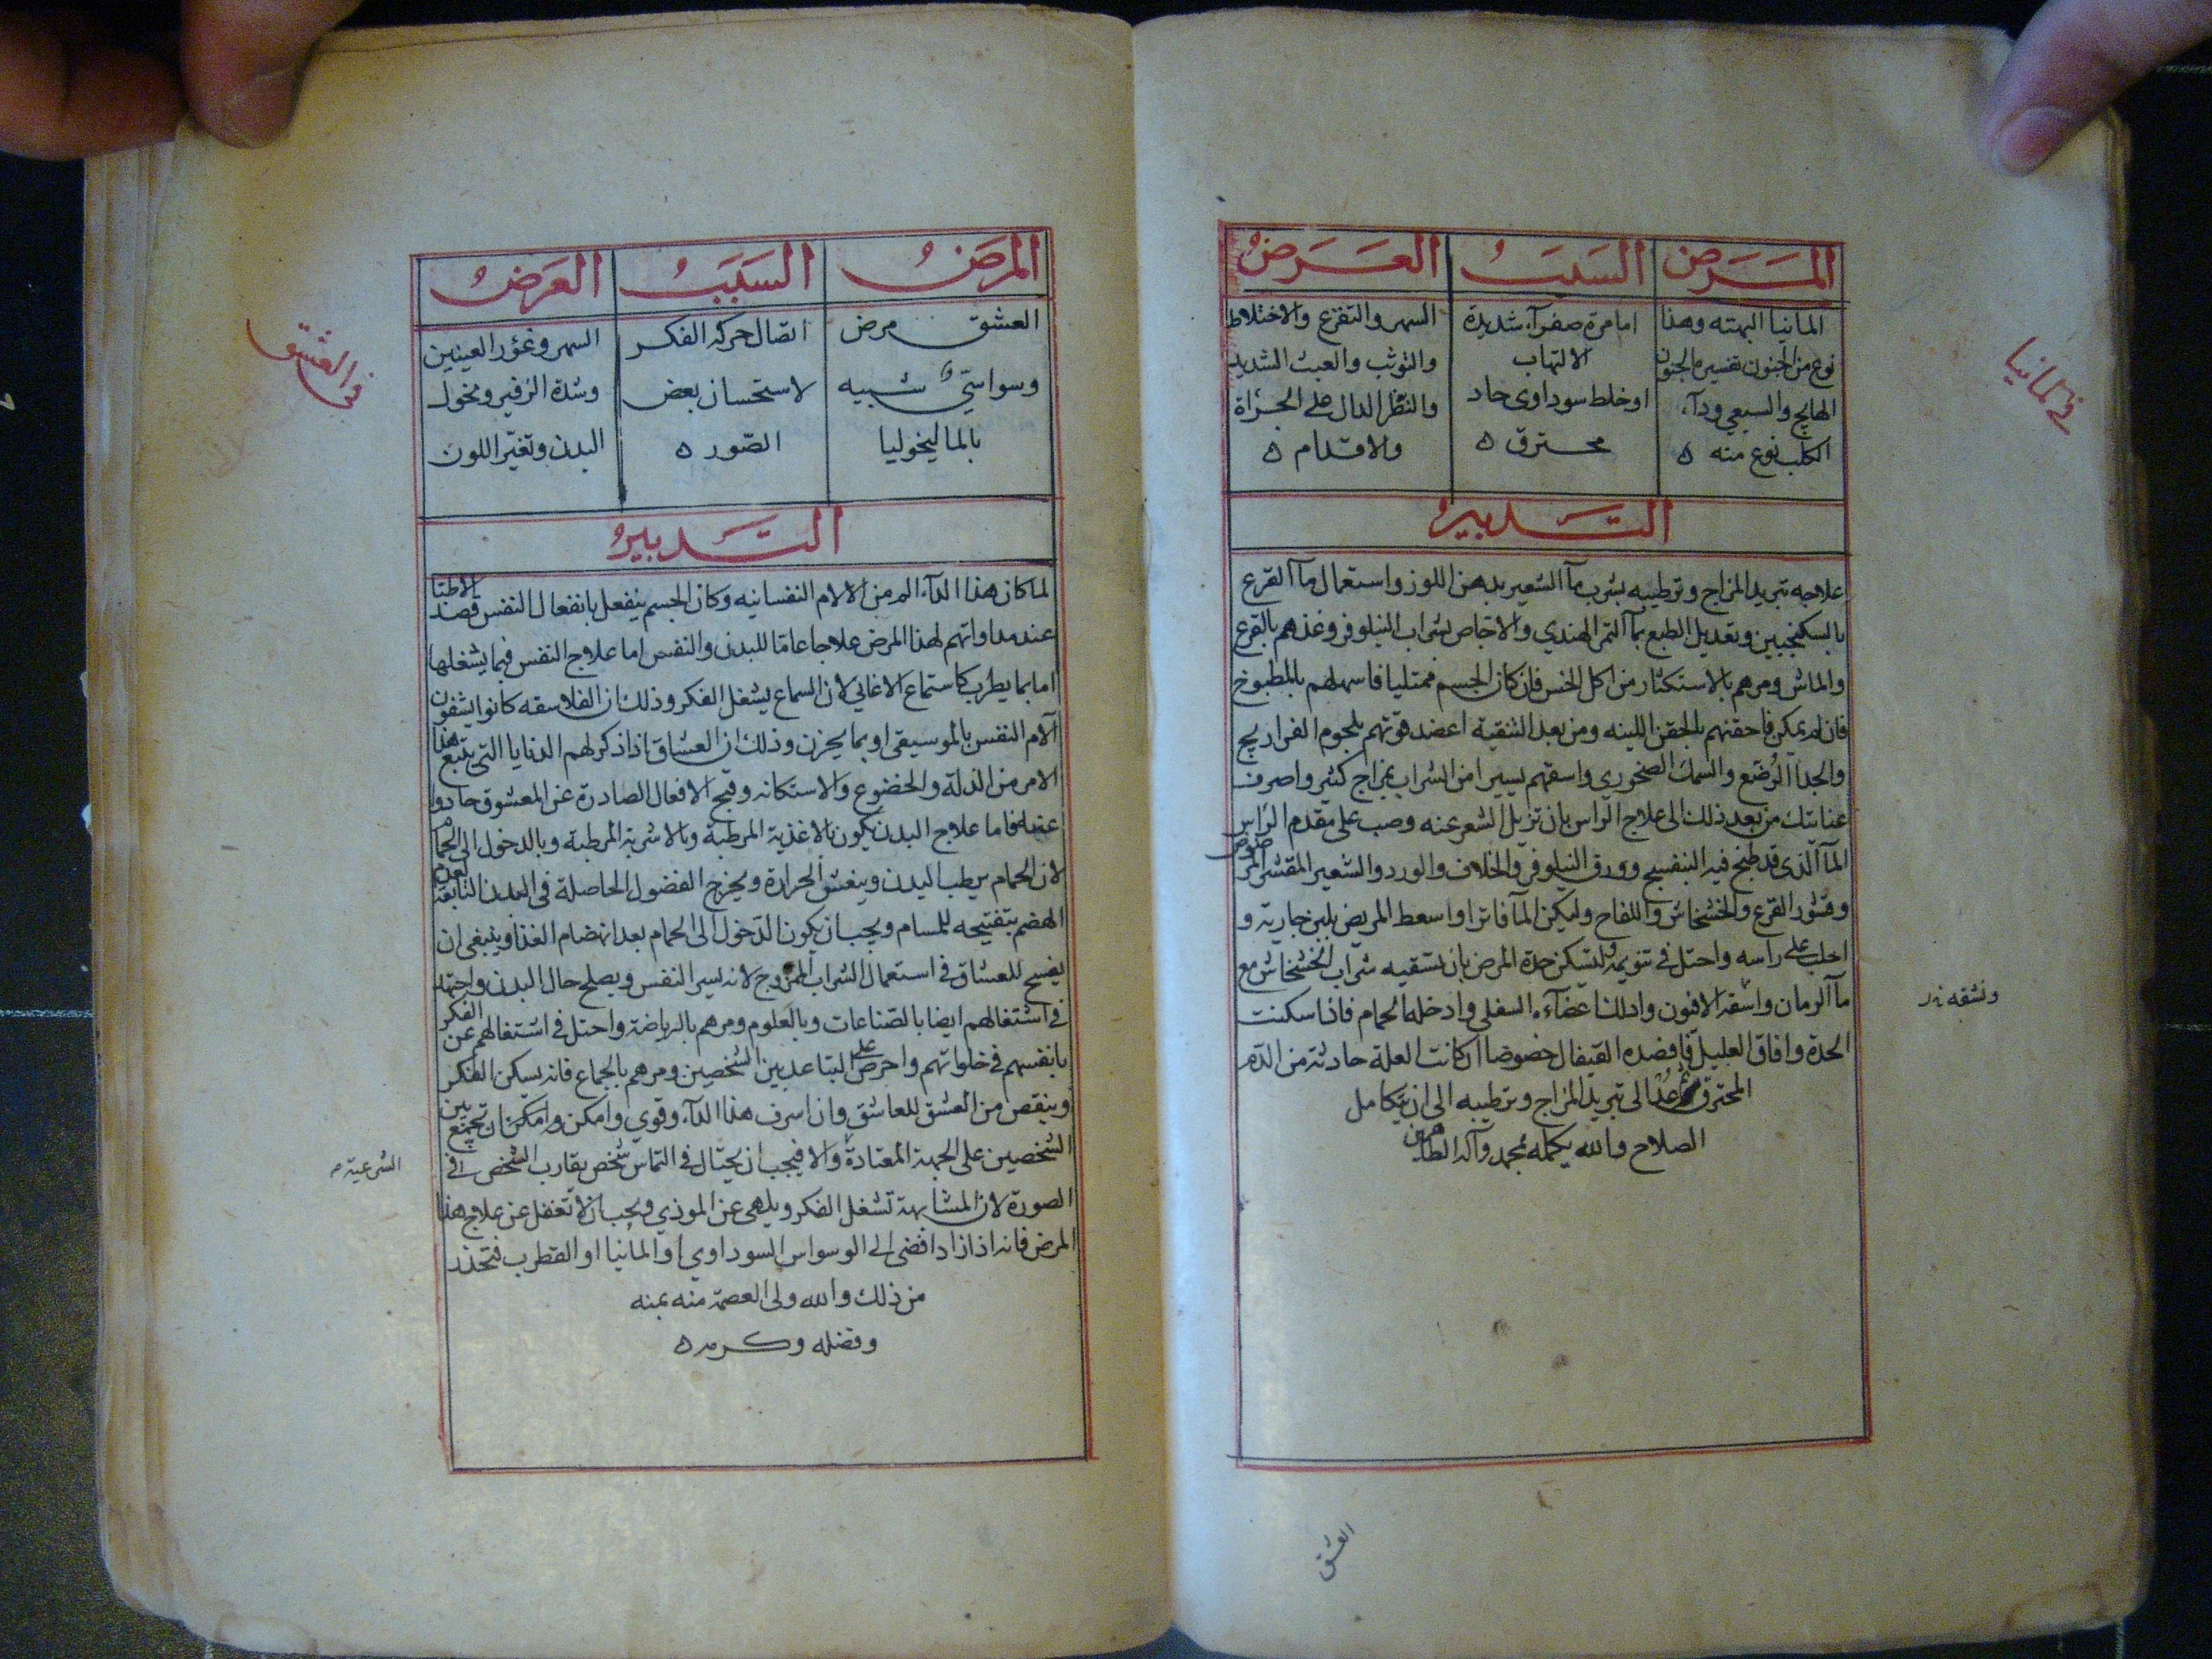 في المانيا
المرض
السبب
العرض
المانيا البهته وهذا
نوع من الجنون تفسيره الجنون
الهايج والسبعي ودآء
الكلب نوع منه ه
اما مرة صفرآء شديدة
الالتهاب
او خلط سوداوى حاد
محترق ه
السهر والتفزع والاختلاط
والتوثب والعبث الشديد
والنظر الدال على الجرأة
والاقدام ه
التدبير
علاجه تبريد المزاج وترطيبه بشرب مآ الشعير بدهن اللوز واستعمال مآ القرع
بالسكنجبين وتعديل الطبع بمآ التمر الهندي والاجاص بشراب النيلوفر وغذهم بالقرع
والماش ومرهم بالاستكثار من اكل الخس فان كان الجسم ممتليا فاسهلهم بالمطبوخ
فان لم يمكن فاحقنهم بالحقن اللينه ومن بعد التنقية اعضد قوتهم بلحوم الفراريج
والجدا الرضع والسمك الصخورى واسقهم يسيرا من الشراب بمزاج كثير واصرف
عنايتك من بعد ذلك الى علاج الراس بان تزيل الشعر عنه وصب على مقدم الراس
المآ الذى قد طبخ فيه البنفسج وورق النيلوفر والخلاف والورد والشعير المقشر المرضوض
وقشور القرع والخشخاش واللفاح وليكن المآ فاترا واسعط المريض بلبن جارية و
احلب على راسه واحتل في تنويمه ولتسكن حدة المرض بان تسقيه شراب الخشخاش مع
مآ الرمان واسقه الافيون وادلك اعضآءه السفلى وادخله الحمام فاذا سكنت
الحدة وافاق العليل فافصده القيفال خصوصا ان كانت العلة حادثة من الدم
المحترق وعد الى تبريد المزاج وترطيبه الى ان يتكامل
الصلاح والله يكمله بمحمد وآله الطاهرين
العشق
في العشق
المرض
السبب
العرض
العشق مرض
وسواسي شبيه
بالماليخوليا
اتصال حركة الفكر
لاستحسان بعض
الصور ه
السهر وغور العينين
وشدة الزفير ونحول
البدن وتغير اللون
التدبير
لما كان هذا الدآء الم من الالام النفسانيه وكان الجسم ينفعل بانفعال النفس قصد الاطبا
عند مداواتهم لهذا المرض علاجا عاما للبدن والنفس اما علاج النفس فبما يشغلها
اما بما يطرب كاستماع الاغاني لان السماع يشغل الفكر وذلك ان الفلاسفه كانوا يشفون
آلام النفس بالموسيقى او بما يحزن وذلك ان العشاق اذا ذكر لهم الدنايا التى يتبع هذا
الامر من الذلة والخضوع والاستكانه وقبح الافعال الصادرة عن المعشوق حادوا
عنه فاما علاج البدن يكون بالاغذية المرطبة وبالاشربة المرطبة وبالدخول الى الحمام
لان الحمام يرطب البدن وينعش الحرارة ويخرج الفضول الحاصلة فى البدن التابعة لعدم
الهضم بتفتيحه للمسام ويجب ان يكون الدخول الى الحمام بعد انهضام الغذا وينبغى ان
يفسح للعشاق في استعمال الشراب الممزوج لانه يسر النفس ويصلح حال البدن واجتهد
في اشتغالهم ايضا بالصناعات وبالعلوم ومرهم بالرياضة واحتل فى اشتغالهم عن الفكر
بانفسهم فى خلواتهم واحرص على التباعد بين الشخصين ومرهم بالجماع فانه يسكن الفكر
وينقص من العشق للعاشق وان اسرف هذا الدآء وقوي وامكن وامكن ان تجمع بين
الشخصين على الجهة المعتادة والا فيجب ان يحتال فى التماس شخص يقارب الشخص فى
الشرعية
الصورة لان المشابهة تشغل الفكر ويلهى عن الموذي ويجب ان لا تغفل عن علاج هذا
المرض فانه اذا زاد افضى الى الوسواس السوداوي او المانيا او القطرب فتحذر
من ذلك والله ولى العصمة منه بمنه
وفضله وكرمه ه